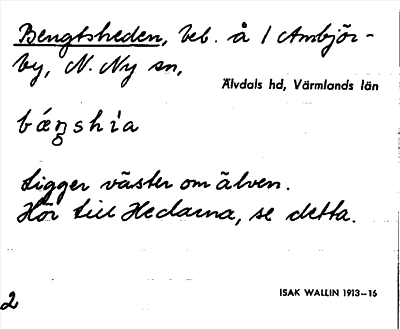 Bengtsheden, beb. å / Ambjör-
by, N. Ny sn,
Älvdals hd, Värmlands län
bǽŋshia
Ligger väster om älven.
Hör till Hedarna, se detta.
ISAK WALLIN 1913–16
2